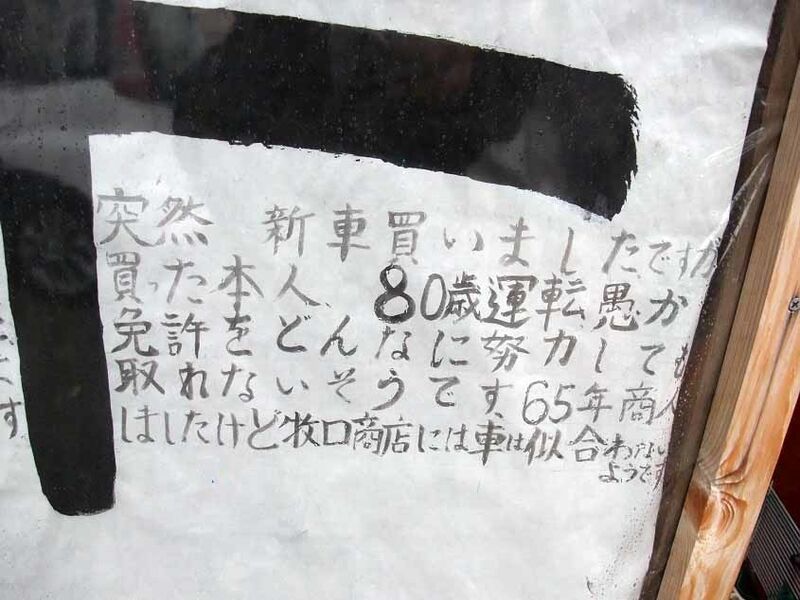 突然 新車買いましたですが
買った本人、80歳運転愚か
免許をどんなに努力しても
取れないそうです、65年商人
はしたけど牧口商店には車は似合わない
ようです
す